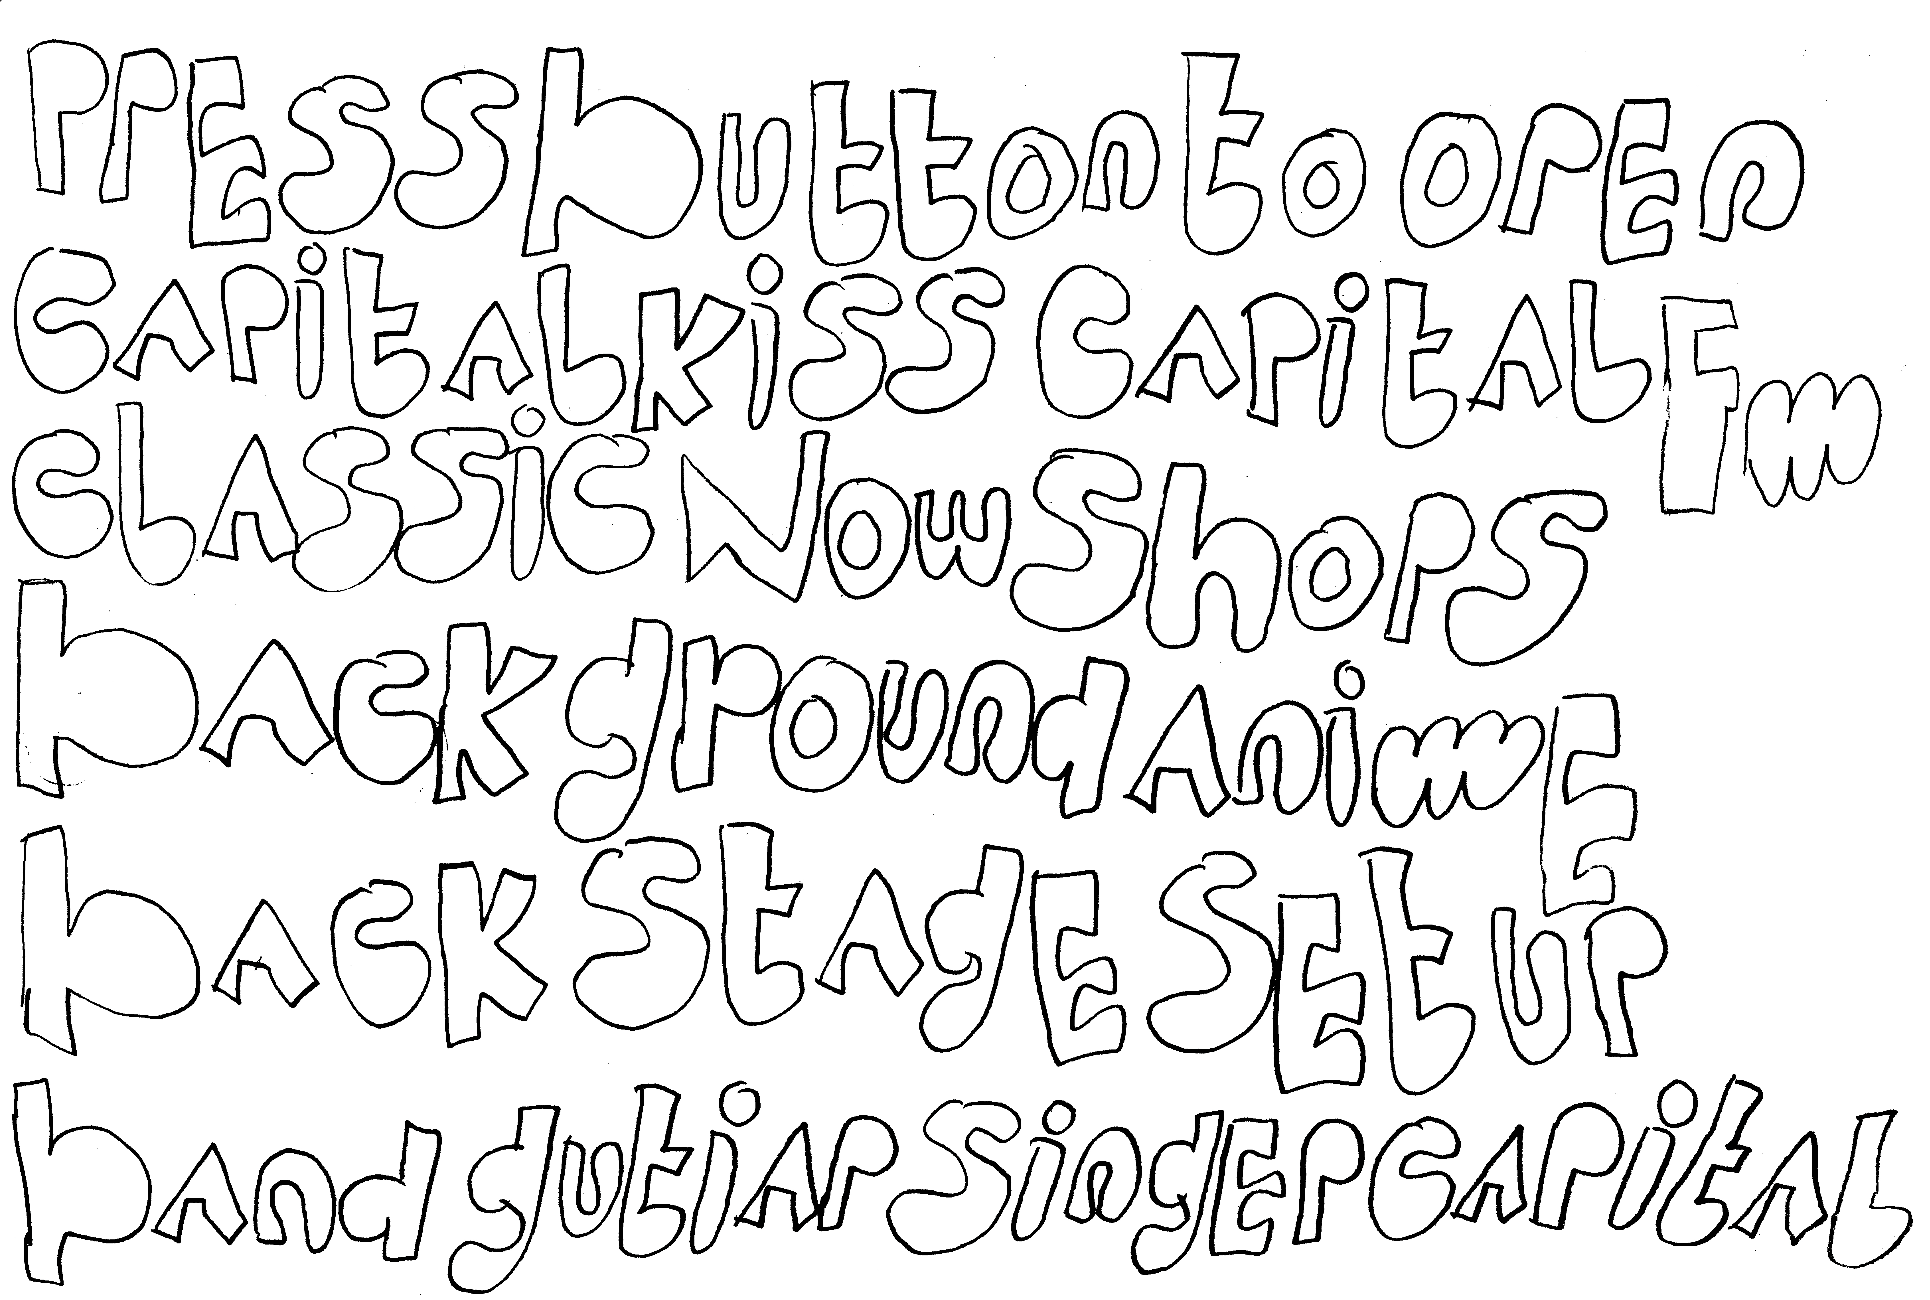 PrESS button to OPEn
CAPitAL kiSS CAPitAL Fm
CLASSiC Now ShoPS
bACk ground AnimE
bACk StAgE SEt uP
bAnd gutiAr SingEr CAPitAL